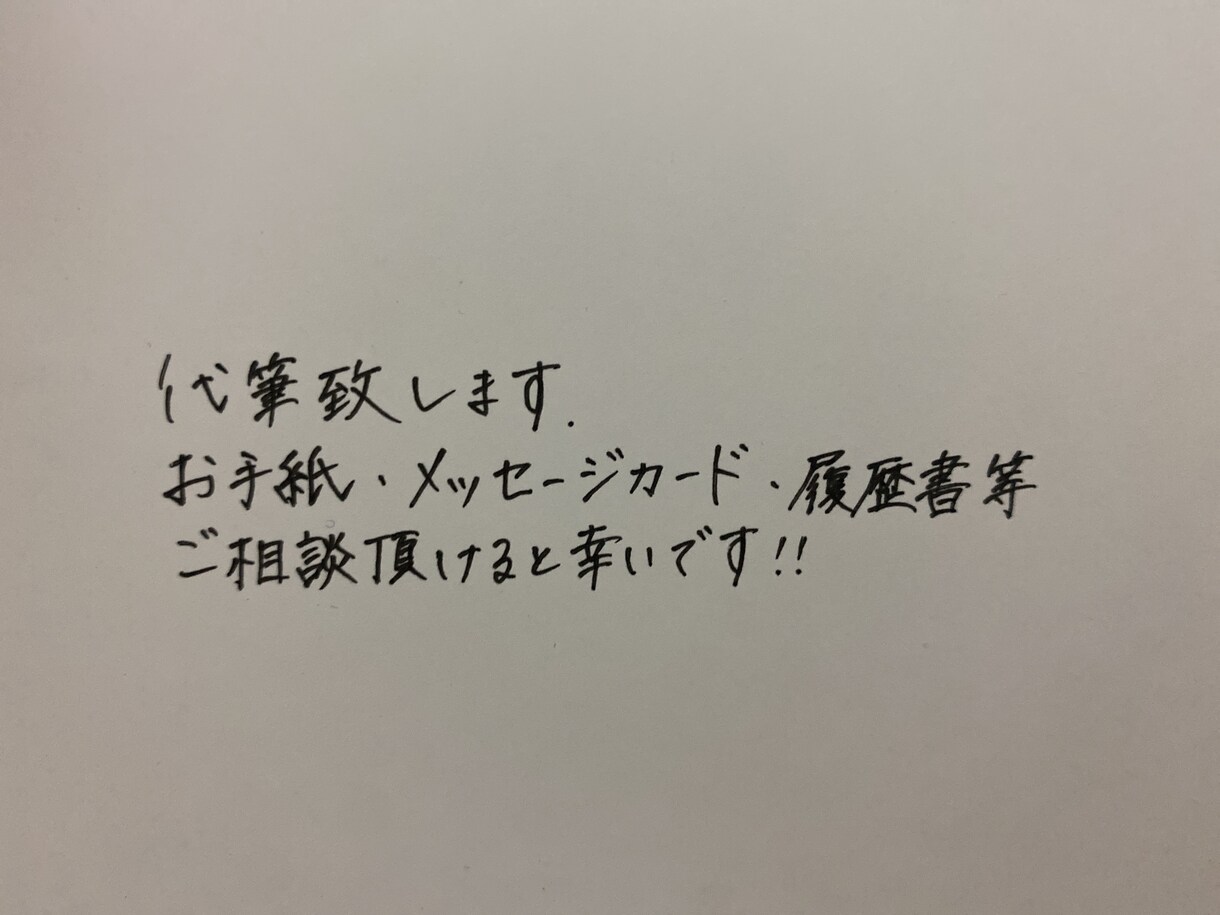 代筆致します.
お手紙・メッセージカード・履歴書等
ご相談頂けると幸いです!!